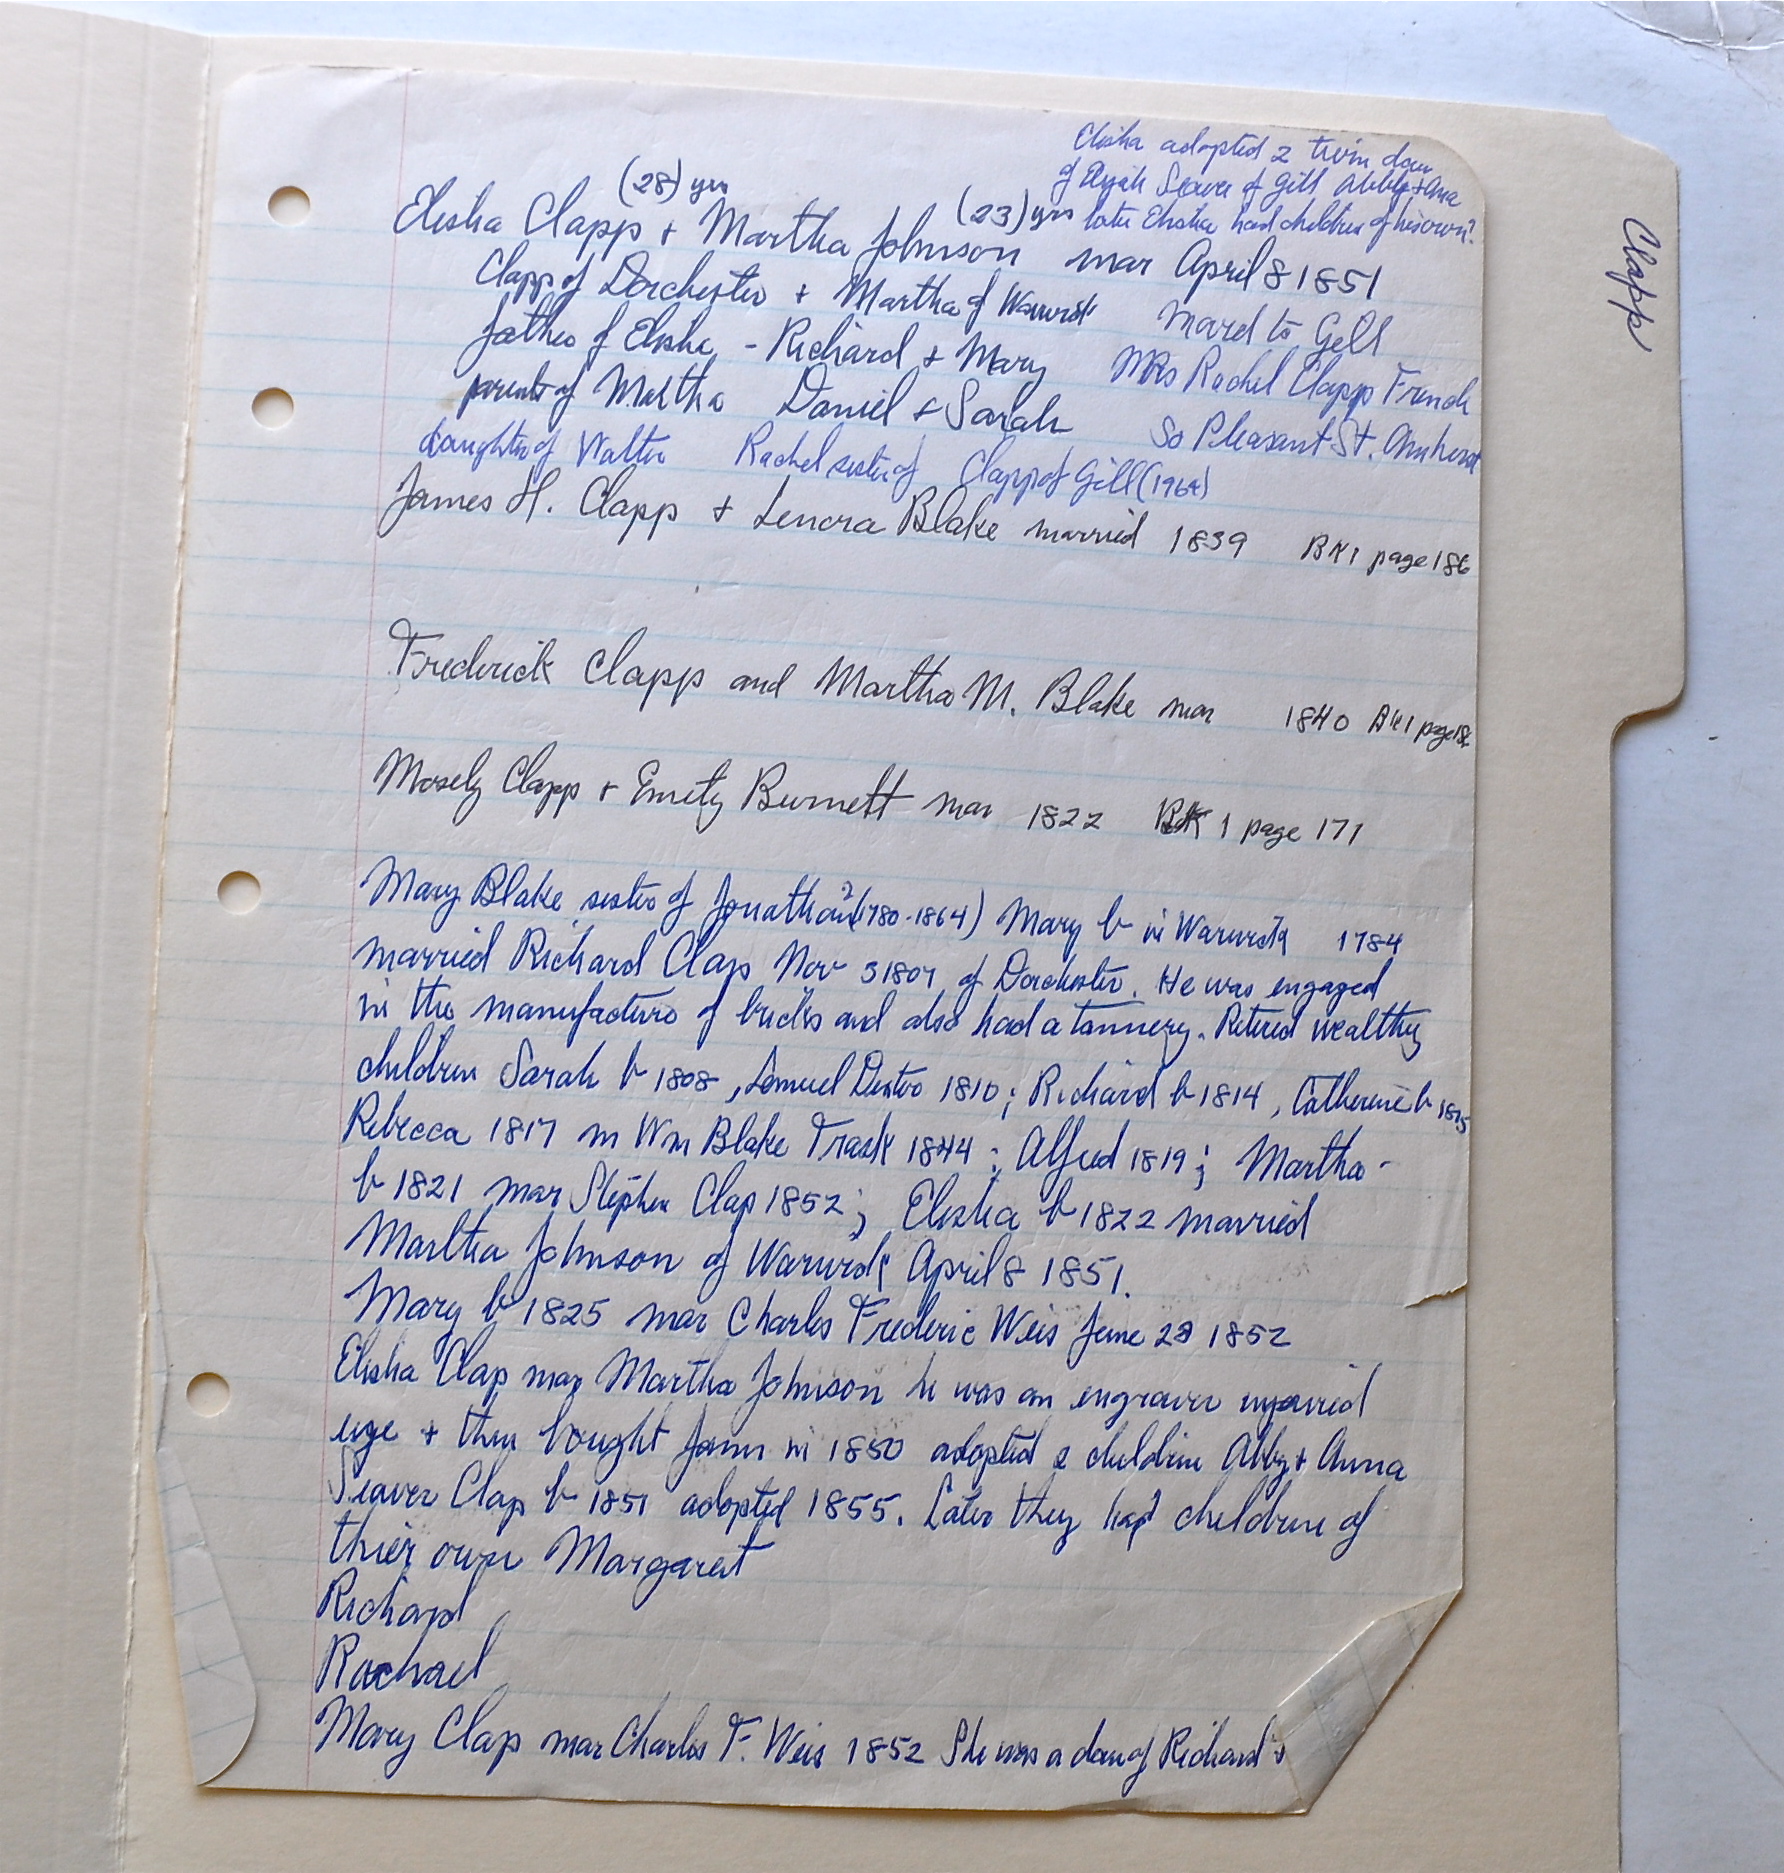 Elisha adopted 2 twin dau
of Elijah Seaver of Gill Abby + Ana
later Elisha had children of his own?
(28) yrs
(23) yrs
Elisha Clapp + Martha Johnson mar April 8 1851
Clapp of Dorchester + Martha of Warwick moved to Gill
father of Elisha - Richard + Mary Mrs Rachel Clapp French
parents of Martha Daniel & Sarah So Pleasant St. Amherst
daughter of Walter Rachel sister of Clapp of Gill (1964)
James H. Clapp + Lenora Blake married 1839 BK 1 page 186
Frederick Clapp and Martha M. Blake mar 1840 BK 1 page
Mosely Clapp + Emily Burnett mar 1822 BK 1 page 171
Mary Blake sister of Jonathan 2 (1780-1864) Mary b in Warwick 1784
married Richard Clap Nov 3 1807 of Dorchester. He was engaged
in the manufacture of bricks and also had a tannery. Retired wealthy
children Sarah b 1808, Lemuel Dexter 1810; Richard b 1814, Catherine b 1815
Rebecca 1817 m Wm Blake Trask 1844; Alfred 1819; Martha -
b 1821 mar Stephen Clap 1852; Elisha b 1822 married
Martha Johnson of Warwick April 8 1851.
Mary b 1825 mar Charles Frederic Weis June 23 1852
Elisha Clap mar Martha Johnson he was an engraver injuried
eye + then bought farm in 1850 adopted 2 children Abby + Anna
Seaver Clap b 1851 adopted 1855. Later they had children of
thier own Margaret
Richard
Rachael
Mary Clap mar Charles F. Weis 1852 She was a dau of Richard +
Clapp